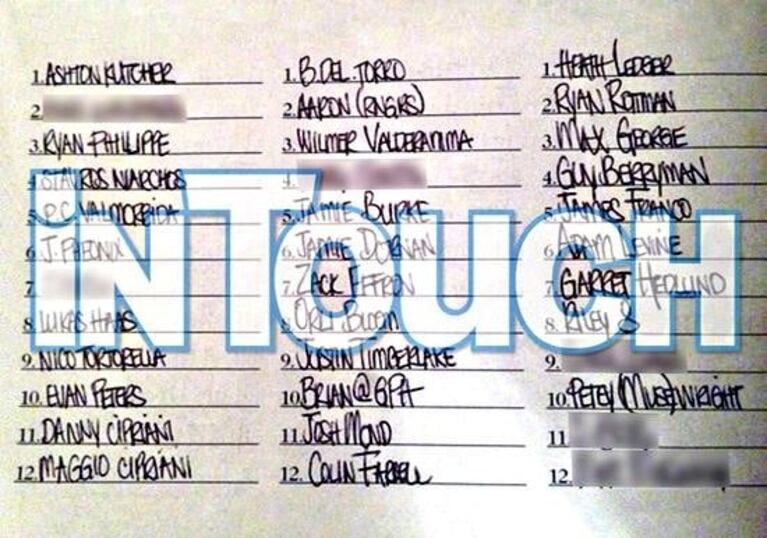 1. ASHTON KUTCHER
2.
3. RYAN PHILLIPPE
4. STAVROS NIARCHOS
5. P.C. VALMORBIDA
6. J. PHEONIX
7.
8. LUKAS HAAS
9. NICO TORTORELLA
10. EVAN PETERS
11. DANNY CIPRIANI
12. MAGGIO CIPRIANI
1. B. DEL TORRO
2. AARON (RNGRS)
3. WILMER VALDERAMMA
4.
5. JAMIE BURKE
6. JAMIE DORNAN
7. ZACK EFFRON
8. ORLI BLOOM
9. JUSTIN TIMBERLAKE
10. BRIAN @ GPH
11. JOSH MOND
12. COLIN FARRELL
1. HEATH LEDGER
2. RYAN ROTTMAN
3. MAX GEORGE
4. GUY BERRYMAN
5. JAMES FRANCO
6. ADAM LEVINE
7. GARRET HEDLUND
8. RILEY S
9.
10. PETEY (MUSE) WRIGHT
11
12.
iNTOUCH